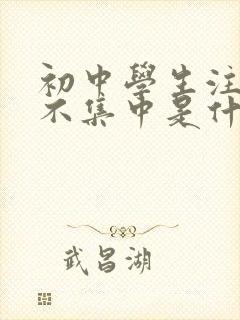 初中學生注
不集中是什
武昌湖